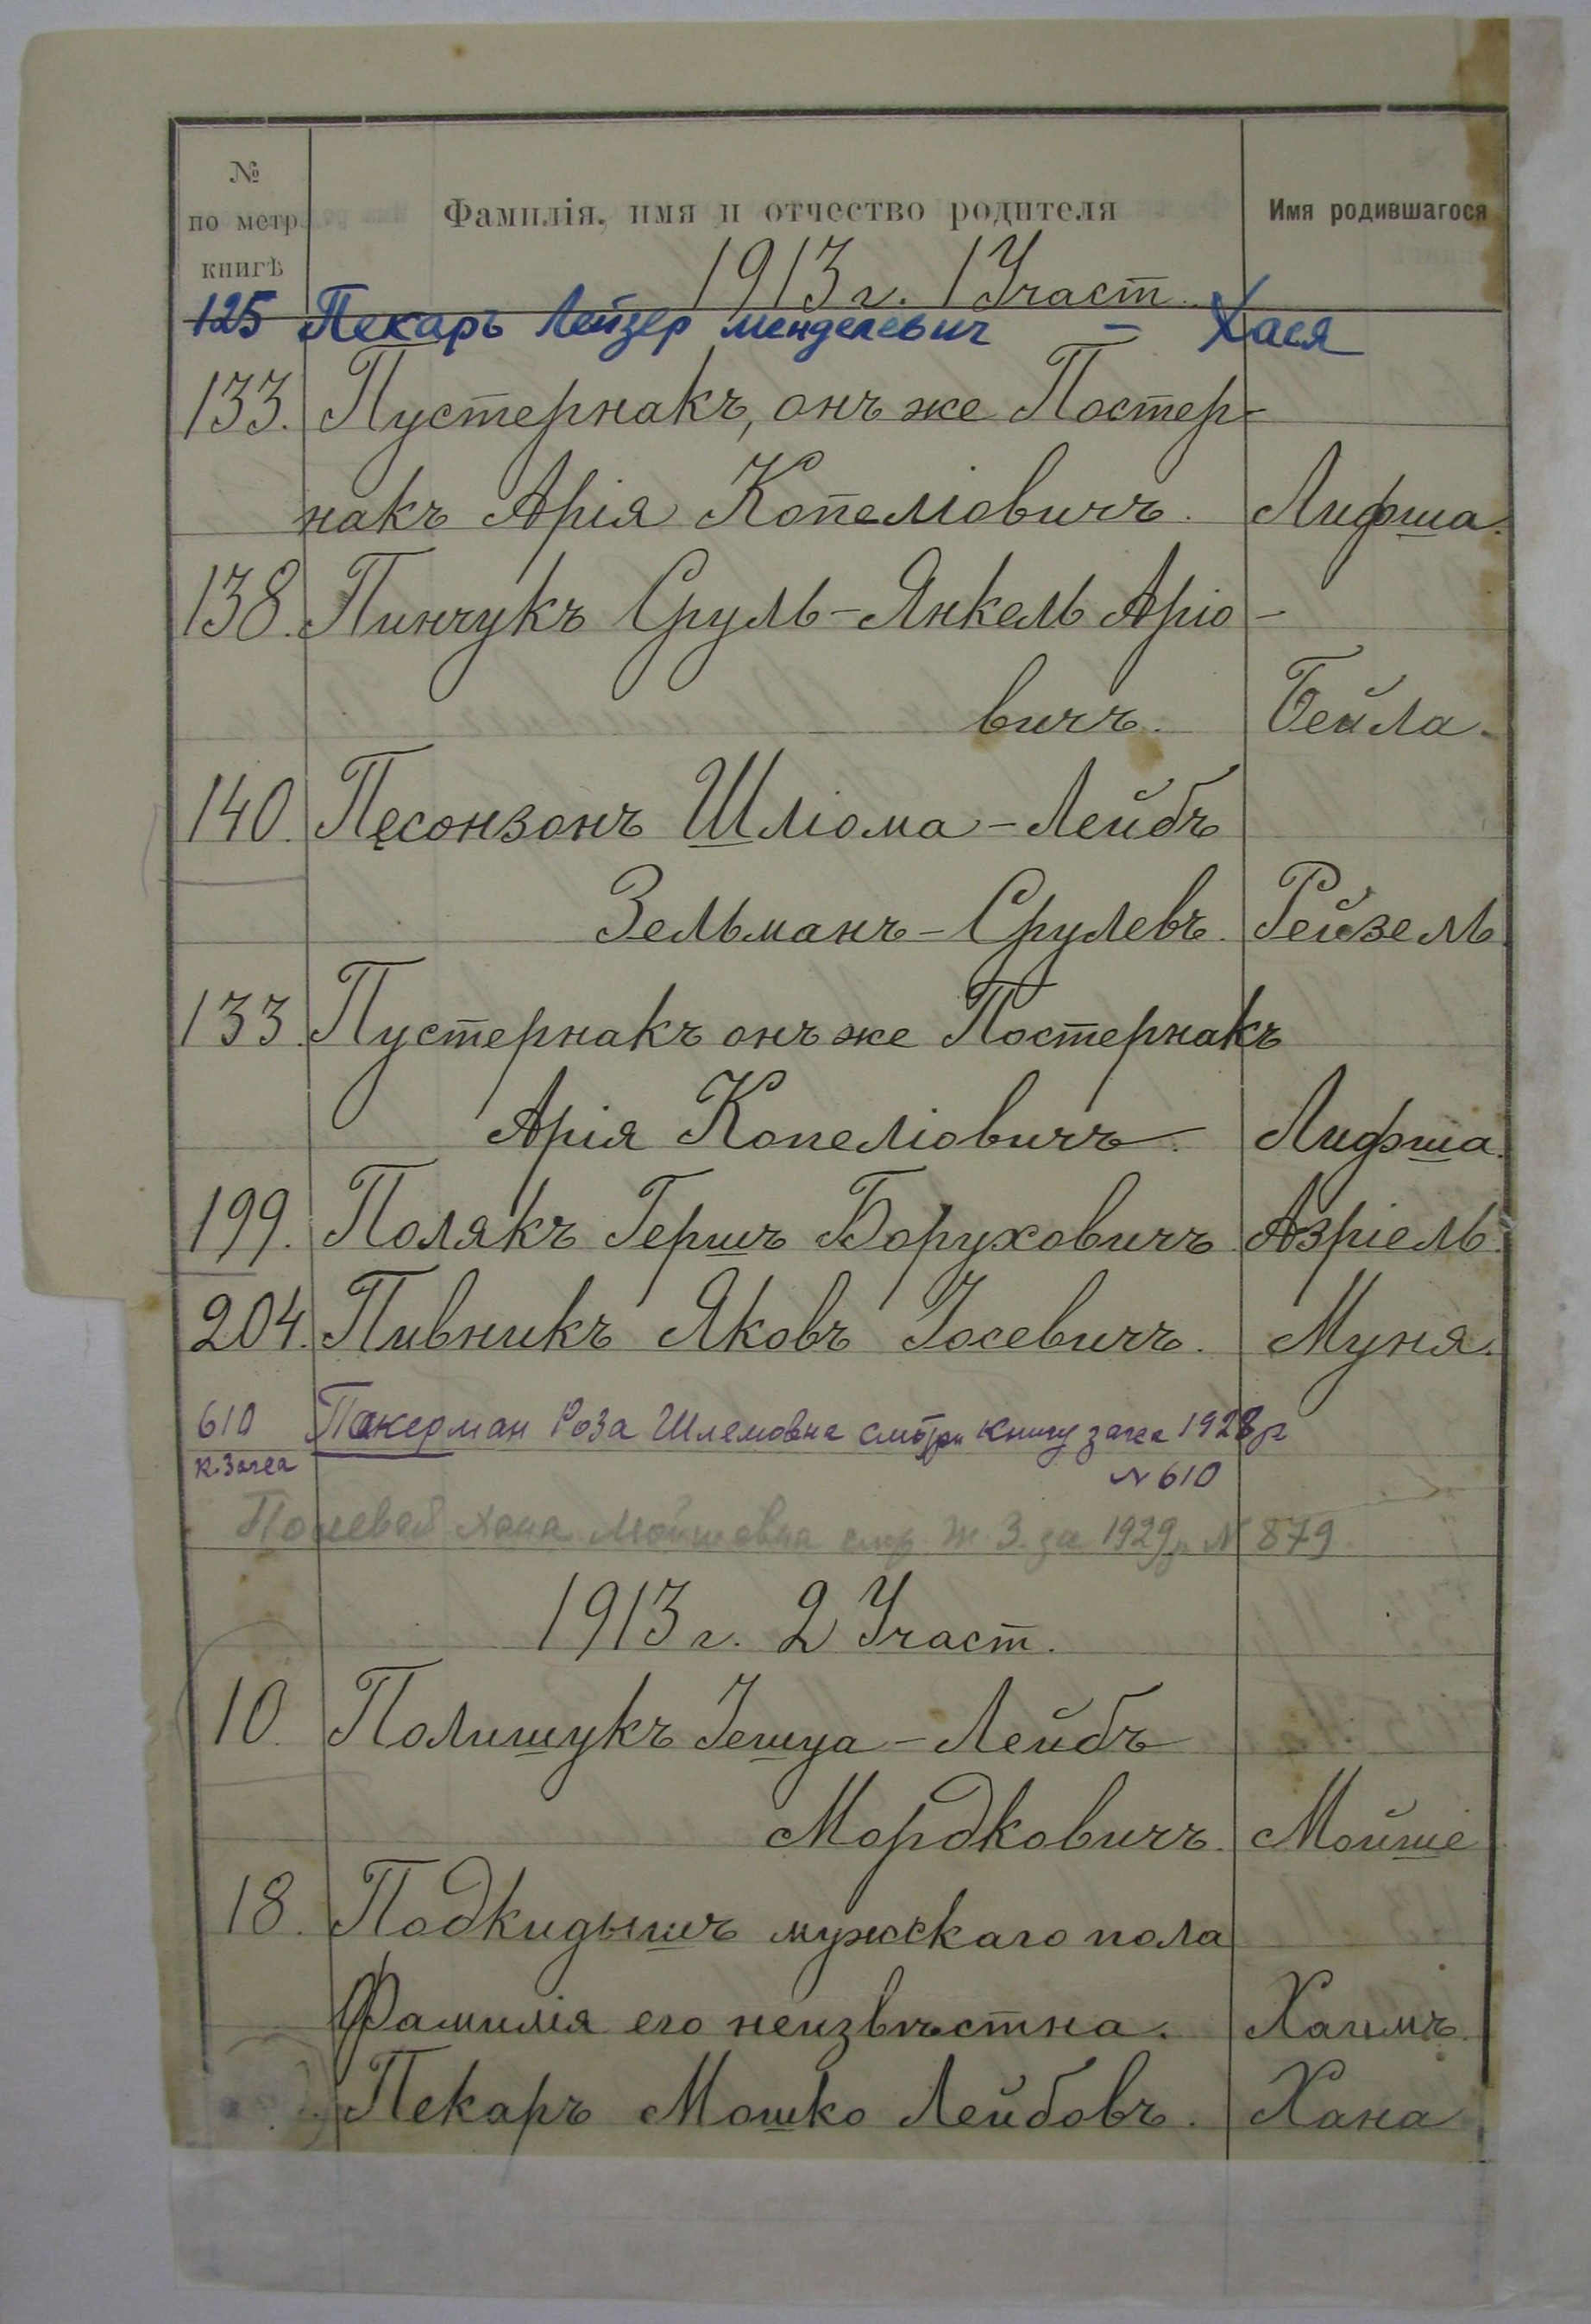 № по метр. книгѣ
Фамилія, имя и отчество родителя
Имя родившагося
1913 г. 1 Участ.
125 Пекарь Лейзер Менделевич – Хася
133. Пустернакъ, онъ же Постер-
накъ Арія Копеліовичъ. Лифша.
138. Пинчукъ Сруль-Янкель Аріо-
вичъ. Бейла.
140. Песонзонъ Шліома-Лейбъ
Зельманъ-Срулевъ. Рейзель.
133. Пустернакъ онъ же Постернакъ
Арія Копеліовичъ. Лифша.
199. Полякъ Гершъ Боруховичъ. Азріель.
204. Пивникъ Яковъ Іосевичъ. Муня.
610 Пакерман Роза Шлемовна смотри книгу загса 1928 г
К. Загса № 610
Полевой Хана Мойшовна смр. Ж. З. за 1929 г. № 879.
1913 г. 2 Участ.
10. Полишукъ Іешуа-Лейбъ
Мордковичъ. Мойше
18. Подкидышъ мужскаго пола
Фамилія его неизвѣстна. Хаимъ.
Пекаръ Мошко Лейбовъ. Хана